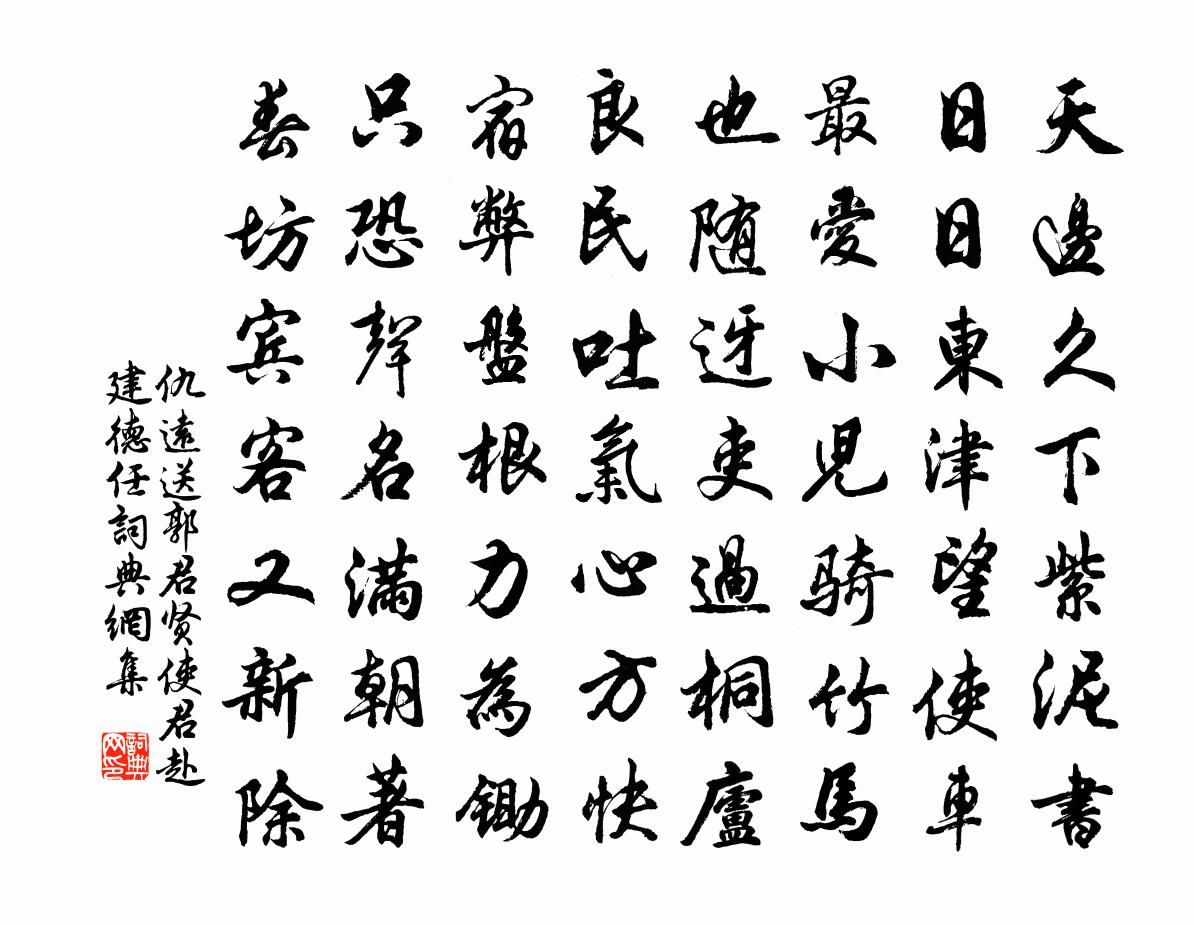 天邊久下紫泥書
日日東津望使車
最愛小児騎竹馬
也随迓吏過桐廬
良民吐氣心方快
宿弊盤根力為鋤
只恐聲名滿朝著
春坊宾客又新除
仇遠送郭君贤使君赴
建德任詞典網集
詞典网印